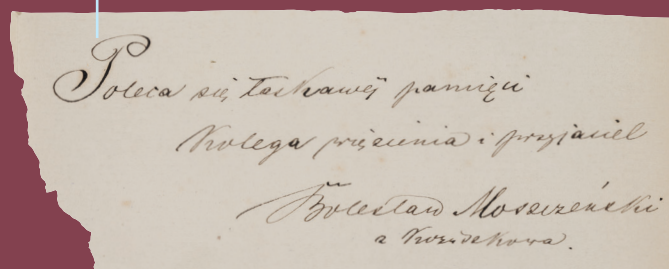 Poleca się łaskawéj pamięci
Kolega więzienia i przyjaciel
Bolesław Moszczeński
z